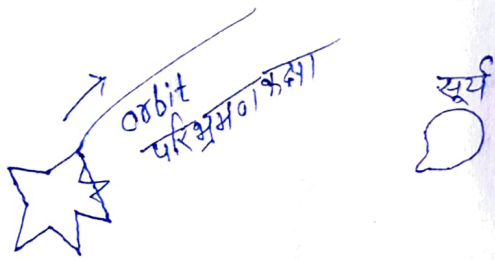 orbit
परिभ्रमण कक्षा
सूर्य